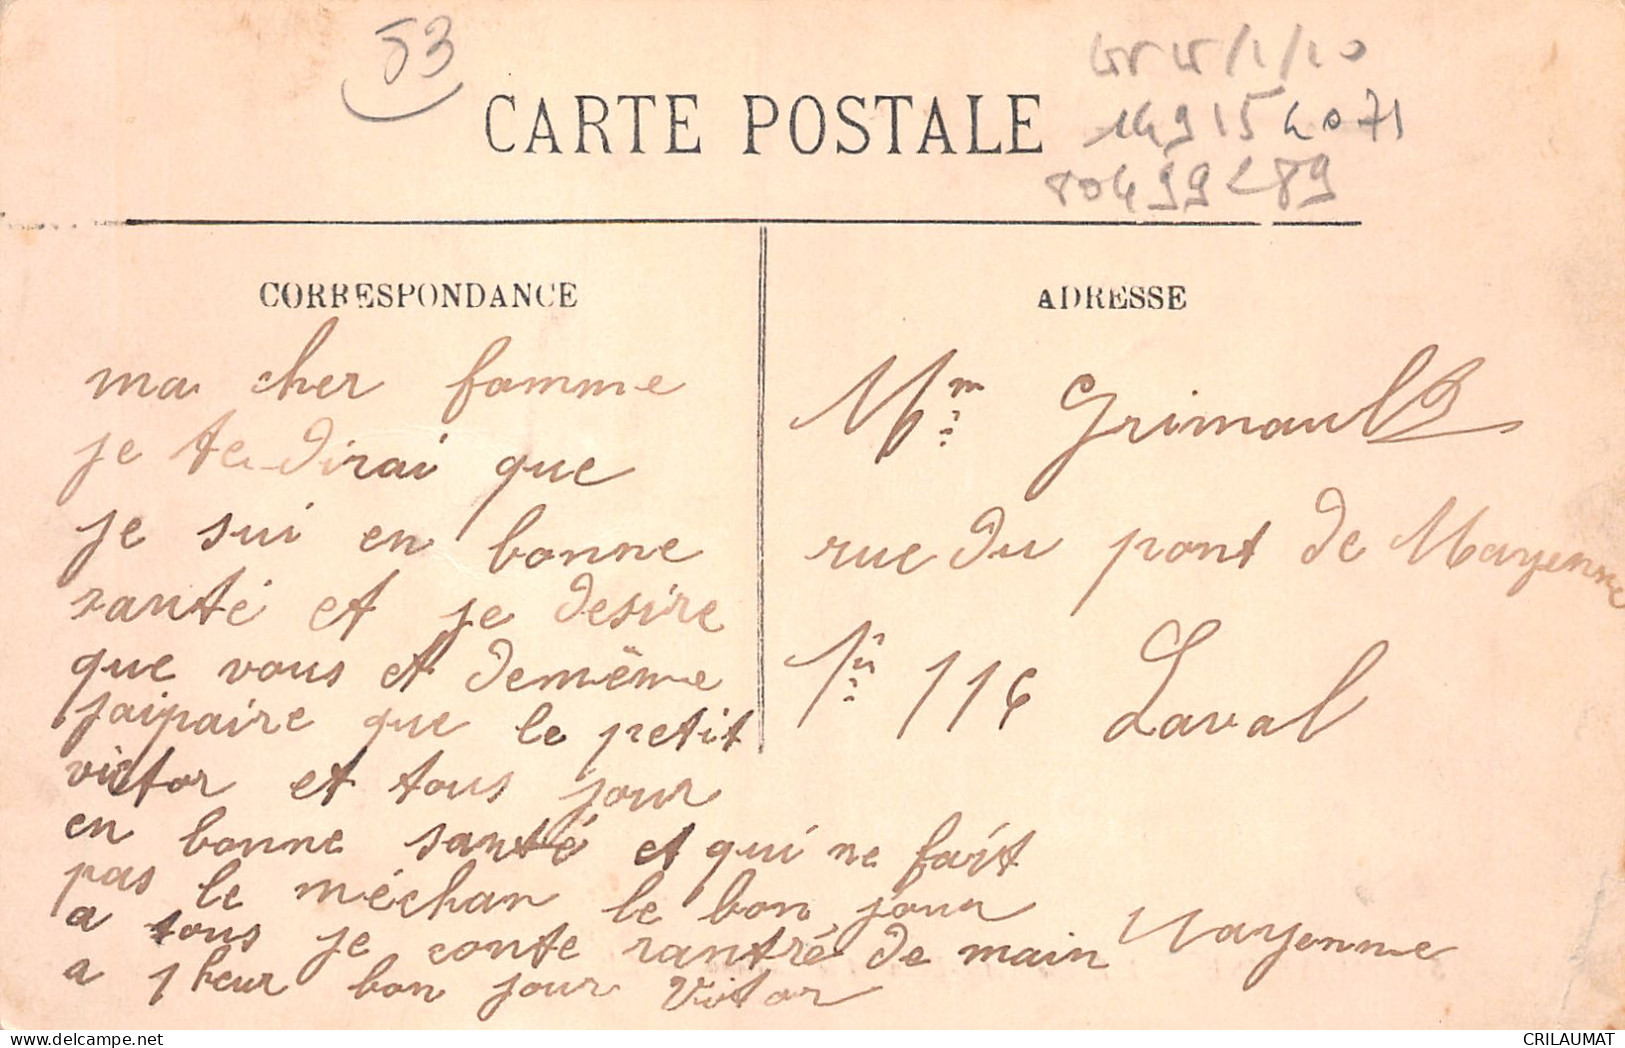 53
14915 4071
CARTE POSTALE
CORRESPONDANCE
ma cher famme
je te dirai que
je sui en bonne
santé et je desire
que vous et demême
jaipaire que le petit
victor et tous jour
en bonne santé et qui ne fait
pas le méchan le bon jour
a tous je conte rantré de main
a 1 heur bon jour Victor
Mayenne
ADRESSE
Mme Grimault
rue du pont de Mayenne
No 116 Laval
CRILAUMAT